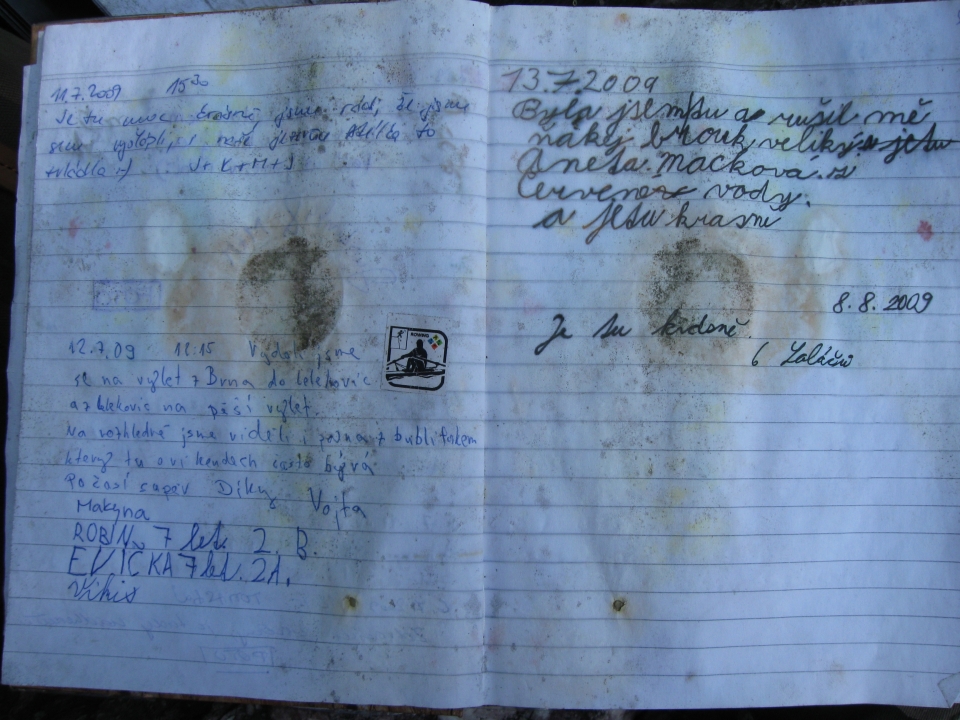 11.7.2009 15³⁰
Je tu moc krásně, jsme rádi, že jsme
sem vyšlápli, i naše to
zvládla :-) J+K+M+J
12.7.09 11:15 Vydali jsme
se na výlet z Brna do Lelekovic
a z lelekovic na pěší výlet.
Na rozhledně jsme viděli i pána z bublifukem
který tu o víkendech často bývá
Počasí supr Díky Vojta
Makyna
ROBIN 7 let 2. B.
EVIČKA 7 let. 2A.
Vikis
ROWING
13.7.2009
Byla jsem tu a rušil mě
nakej brouk veliký a je tu
Aneta. Macková. z
Červene vody.
a je tu krasne
8.8.2009
Je tu kidoně.